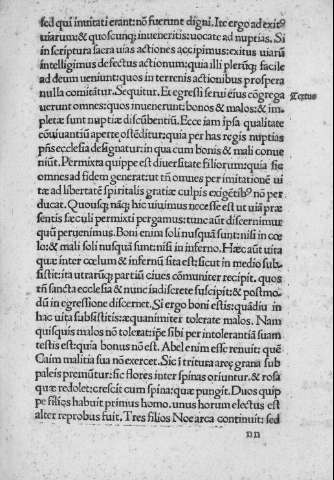 sed qui inuitati erant: nō fuerunt digni. Ite ergo ad exitꝰ
uiarum: & quoscunq; inueneritis: uocate ad nuptias. Si
in scriptura sacra uias actiones accipimus: exitus uiarū
intelligimus defectus actionum: quia illi plerūq; facile
ad deum ueniunt: quos in terrenis actionibus prospera
nulla comitātur. Sequitur. Et egressi serui eius cōgrega
Textus
uerunt omnes: quos inuenerunt: bonos & malos: & im
pletæ sunt nuptiæ discūbentiū. Ecce iam ipsa qualitate
cōuiuantiū aperte ostēditur: quia per has regis nuptias
pn̄s ecclesia designatur: in qua cum bonis & mali conue
niūt. Permixta quippe est diuersitate filiorum: quia sic
omnes ad fidem generat: ut tn̄ omnes per imitationē ui
tæ ad libertatē spiritalis gratiæ culpis exigētibꝰ nō per
ducat. Quousq; nāq; hic uiuimus necesse est ut uiā præ
sentis sæculi permixti pergamus: tunc aūt discernimur
cū peruenimus. Boni enim soli nusquā sunt: nisi in cœ
lo: & mali soli nusquā sunt: nisi in inferno. Hæc aūt uita
quæ inter cœlum & infernū sita est: sicut in medio sub/
sistit: ita utrarūq; partiū ciues cōmuniter recipit. quos
tn̄ sancta ecclesia & nunc indiscrete suscipit: & postmo/
dū in egressione discernet. Si ergo boni estis: quādiu in
hac uita subsistitis: æquanimiter tolerate malos. Nam
quisquis malos nō tolerat: ipse sibi per intolerantiā suam
testis est: quia bonus nō est. Abel enim esse renuit: quē
Caim malitia sua nō exercet. Sic ī tritura areę grana sub
paleis premūtur: sic flores inter spinas oriuntur. & rosa
quæ redolet: crescit cum spina: quæ pungit. Duos quip
pe filios habuit primus homo. unus horum electus est
alter reprobus fuit. Tres filios Noe arca continuit: sed
nn